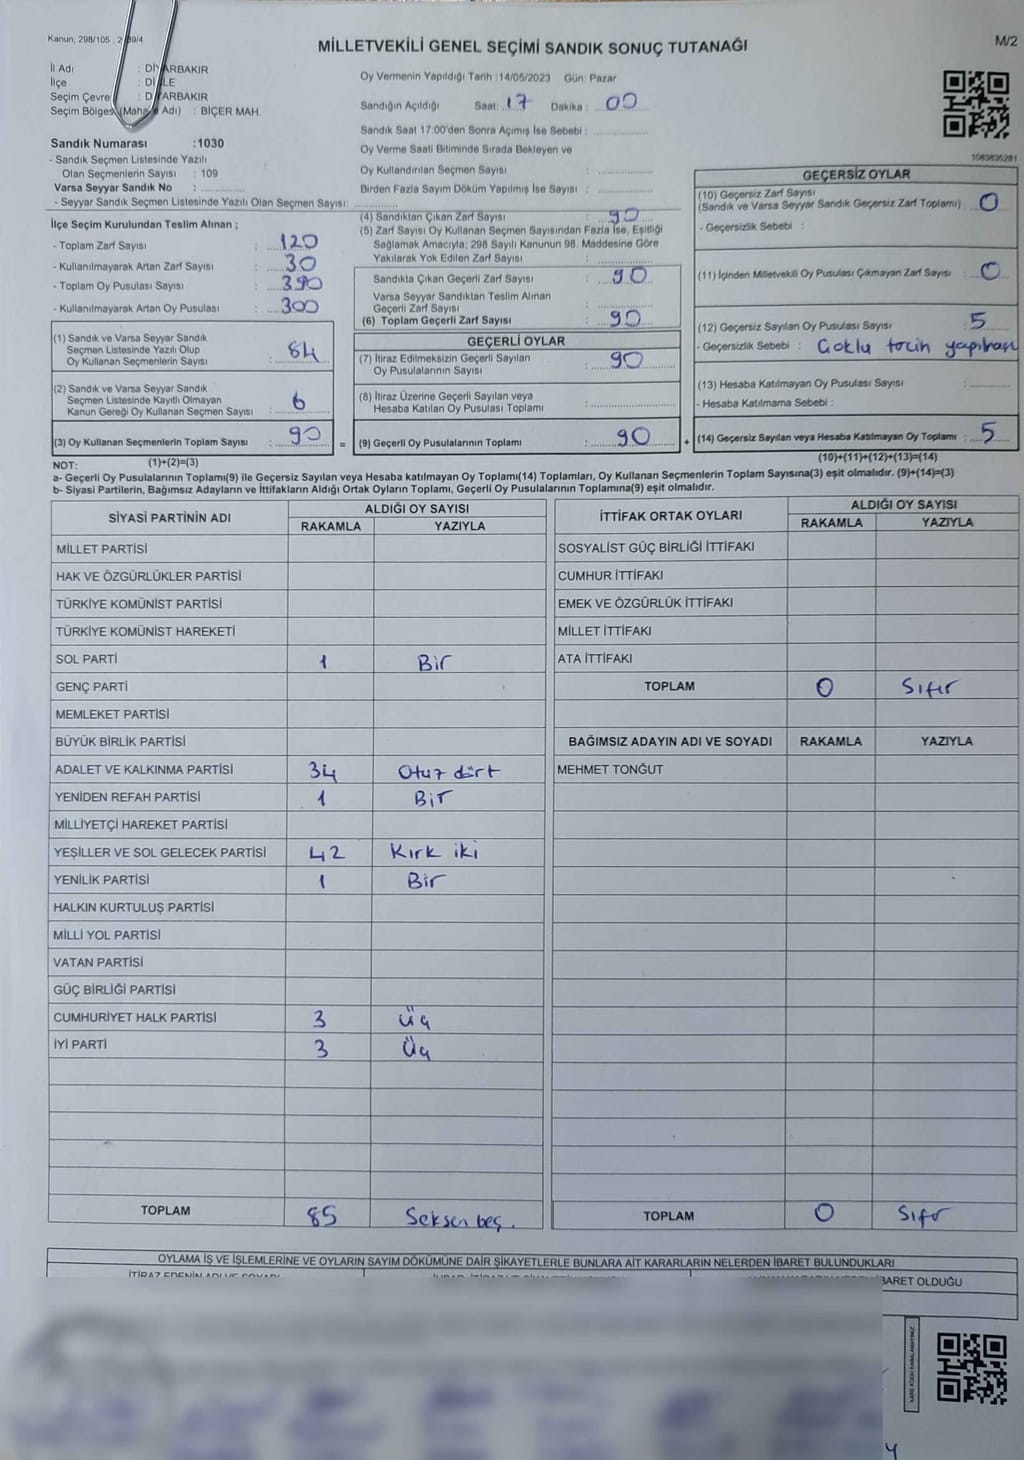 Kanun; 298/105
MİLLETVEKİLİ GENEL SEÇİMİ SANDIK SONUÇ TUTANAĞI
M/2
İl Adı : DİYARBAKIR
İlçe
Seçim Çevre DİYARBAKIR
Seçim Bölges Adı) : BİÇER MAH.
Sandık Numarası :1030
- Sandık Seçmen Listesinde Yazılı
Olan Seçmenlerin Sayısı : 109
Varsa Seyyar Sandık No :
- Seyyar Sandık Seçmen Listesinde Yazılı Olan Seçmen Sayısı:
Oy Vermenin Yapıldığı Tarih :14/05/2023 Gün: Pazar
Sandığın Açıldığı Saat: 17 Dakika : 00
Sandık Saat 17:00'den Sonra Açımış İse Sebebi :
Oy Verme Saati Bitiminde Sırada Bekleyen ve
Oy Kullandırılan Seçmen Sayısı :
Birden Fazla Sayım Döküm Yapılmış İse Sayısı :
1083835281
İlçe Seçim Kurulundan Teslim Alınan ;
- Toplam Zarf Sayısı : 120
- Kullanılmayarak Artan Zarf Sayısı : 30
- Toplam Oy Pusulası Sayısı : 390
- Kullanılmayarak Artan Oy Pusulası : 300
(1) Sandık ve Varsa Seyyar Sandık
Seçmen Listesinde Yazılı Olup
Oy Kullanan Seçmenlerin Sayısı : 84
(2) Sandık ve Varsa Seyyar Sandık
Seçmen Listesinde Kayıtlı Olmayan
Kanun Gereği Oy Kullanan Seçmen Sayısı : 6
(3) Oy Kullanan Seçmenlerin Toplam Sayısı : 90
(4) Sandıktan Çıkan Zarf Sayısı : 90
(5) Zarf Sayısı Oy Kullanan Seçmen Sayısından Fazla İse, Eşitliği
Sağlamak Amacıyla; 298 Sayılı Kanunun 98. Maddesine Göre
Yakılarak Yok Edilen Zarf Sayısı :
Sandıkta Çıkan Geçerli Zarf Sayısı : 90
Varsa Seyyar Sandıktan Teslim Alınan
Geçerli Zarf Sayısı :
(6) Toplam Geçerli Zarf Sayısı : 90
GEÇERLİ OYLAR
(7) İtiraz Edilmeksizin Geçerli Sayılan
Oy Pusulalarının Sayısı : 90
(8) İtiraz Üzerine Geçerli Sayılan veya
Hesaba Katılan Oy Pusulası Toplamı :
= (9) Geçerli Oy Pusulalarının Toplamı : 90
GEÇERSİZ OYLAR
(10) Geçersiz Zarf Sayısı
(Sandık ve Varsa Seyyar Sandık Geçersiz Zarf Toplamı) : 0
- Geçersizlik Sebebi :
(11) İçinden Milletvekili Oy Pusulası Çıkmayan Zarf Sayısı : 0
(12) Geçersiz Sayılan Oy Pusulası Sayısı : 5
- Geçersizlik Sebebi : Çoklu
(13) Hesaba Katılmayan Oy Pusulası Sayısı :
- Hesaba Katılmama Sebebi :
+ (14) Geçersiz Sayılan veya Hesaba Katılmayan Oy Toplamı : 5
NOT: (1)+(2)=(3) (10)+(11)+(12)+(13)=(14)
a- Geçerli Oy Pusulalarının Toplamı(9) ile Geçersiz Sayılan veya Hesaba katılmayan Oy Toplamı(14) Toplamları, Oy Kullanan Seçmenlerin Toplam Sayısına(3) eşit olmalıdır. (9)+(14)=(3)
b- Siyasi Partilerin, Bağımsız Adayların ve İttifakların Aldığı Ortak Oyların Toplamı, Geçerli Oy Pusulalarının Toplamına(9) eşit olmalıdır.
SİYASİ PARTİNİN ADI ALDIĞI OY SAYISI
RAKAMLA YAZIYLA
MİLLET PARTİSİ
HAK VE ÖZGÜRLÜKLER PARTİSİ
TÜRKİYE KOMÜNİST PARTİSİ
TÜRKİYE KOMÜNİST HAREKETİ
SOL PARTİ 1 Bir
GENÇ PARTİ
MEMLEKET PARTİSİ
BÜYÜK BİRLİK PARTİSİ
ADALET VE KALKINMA PARTİSİ 34 Otuz dört
YENİDEN REFAH PARTİSİ 1 Bir
MİLLİYETÇİ HAREKET PARTİSİ
YEŞİLLER VE SOL GELECEK PARTİSİ 42 Kırk iki
YENİLİK PARTİSİ 1 Bir
HALKIN KURTULUŞ PARTİSİ
MİLLİ YOL PARTİSİ
VATAN PARTİSİ
GÜÇ BİRLİĞİ PARTİSİ
CUMHURİYET HALK PARTİSİ 3 Üç
İYİ PARTİ 3 Üç
TOPLAM 85 Seksen beş.
İTTİFAK ORTAK OYLARI ALDIĞI OY SAYISI
RAKAMLA YAZIYLA
SOSYALİST GÜÇ BİRLİĞİ İTTİFAKI
CUMHUR İTTİFAKI
EMEK VE ÖZGÜRLÜK İTTİFAKI
MİLLET İTTİFAKI
ATA İTTİFAKI
TOPLAM 0 Sıfır
BAĞIMSIZ ADAYIN ADI VE SOYADI RAKAMLA YAZIYLA
MEHMET TONĞUT
TOPLAM 0 Sıfır
OYLAMA İŞ VE İŞLEMLERİNE VE OYLARIN SAYIM DÖKÜMÜNE DAİR ŞİKAYETLERLE BUNLARA AİT KARARLARIN NELERDEN İBARET BULUNDUKLARI
İTİRAZ EDENİN ADI VE SOYADI İBARET OLDUĞU